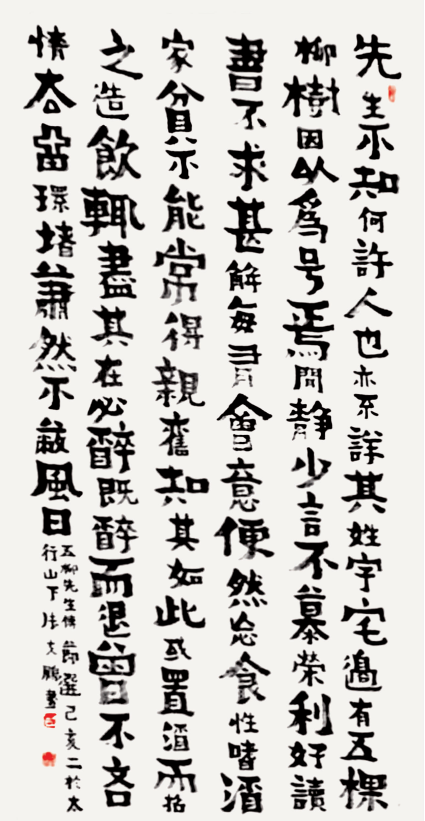 先生不知何許人也亦不詳其姓字宅邊有五棵
柳樹因以爲号焉閒静少言不慕榮利好讀
書不求甚解每有會意便然忘食性嗜酒
家貧不能常得親舊知其如此或置酒而招
之造飲輒盡其在必醉既醉而退曾不吝
情去留環堵蕭然不蔽風日
五柳先生傳節選己亥二於太
行山下文鵬書